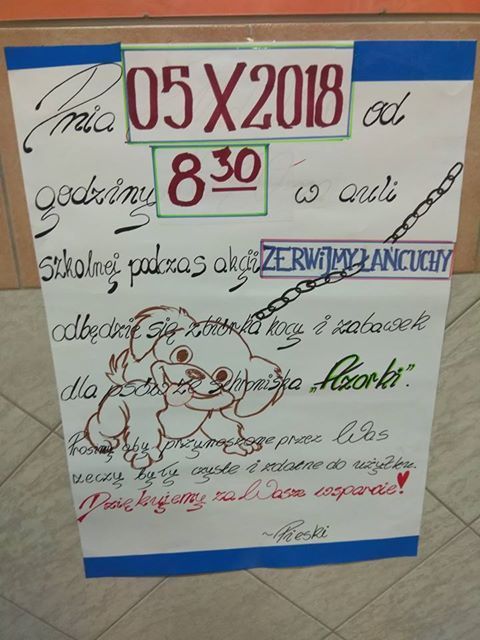 Dnia 05 X 2018 od
godziny 8³⁰ w auli
szkolnej podczas akcji ZERWIJMY ŁAŃCUCHY
odbędzie się zbiórka kocy i zabawek
dla psów ze schroniska "Azorki".
Prosimy aby przynoszone przez Was
rzeczy były czyste i zdatne do użytku.
Dziękujemy za Wasze wsparcie!
~Pieski